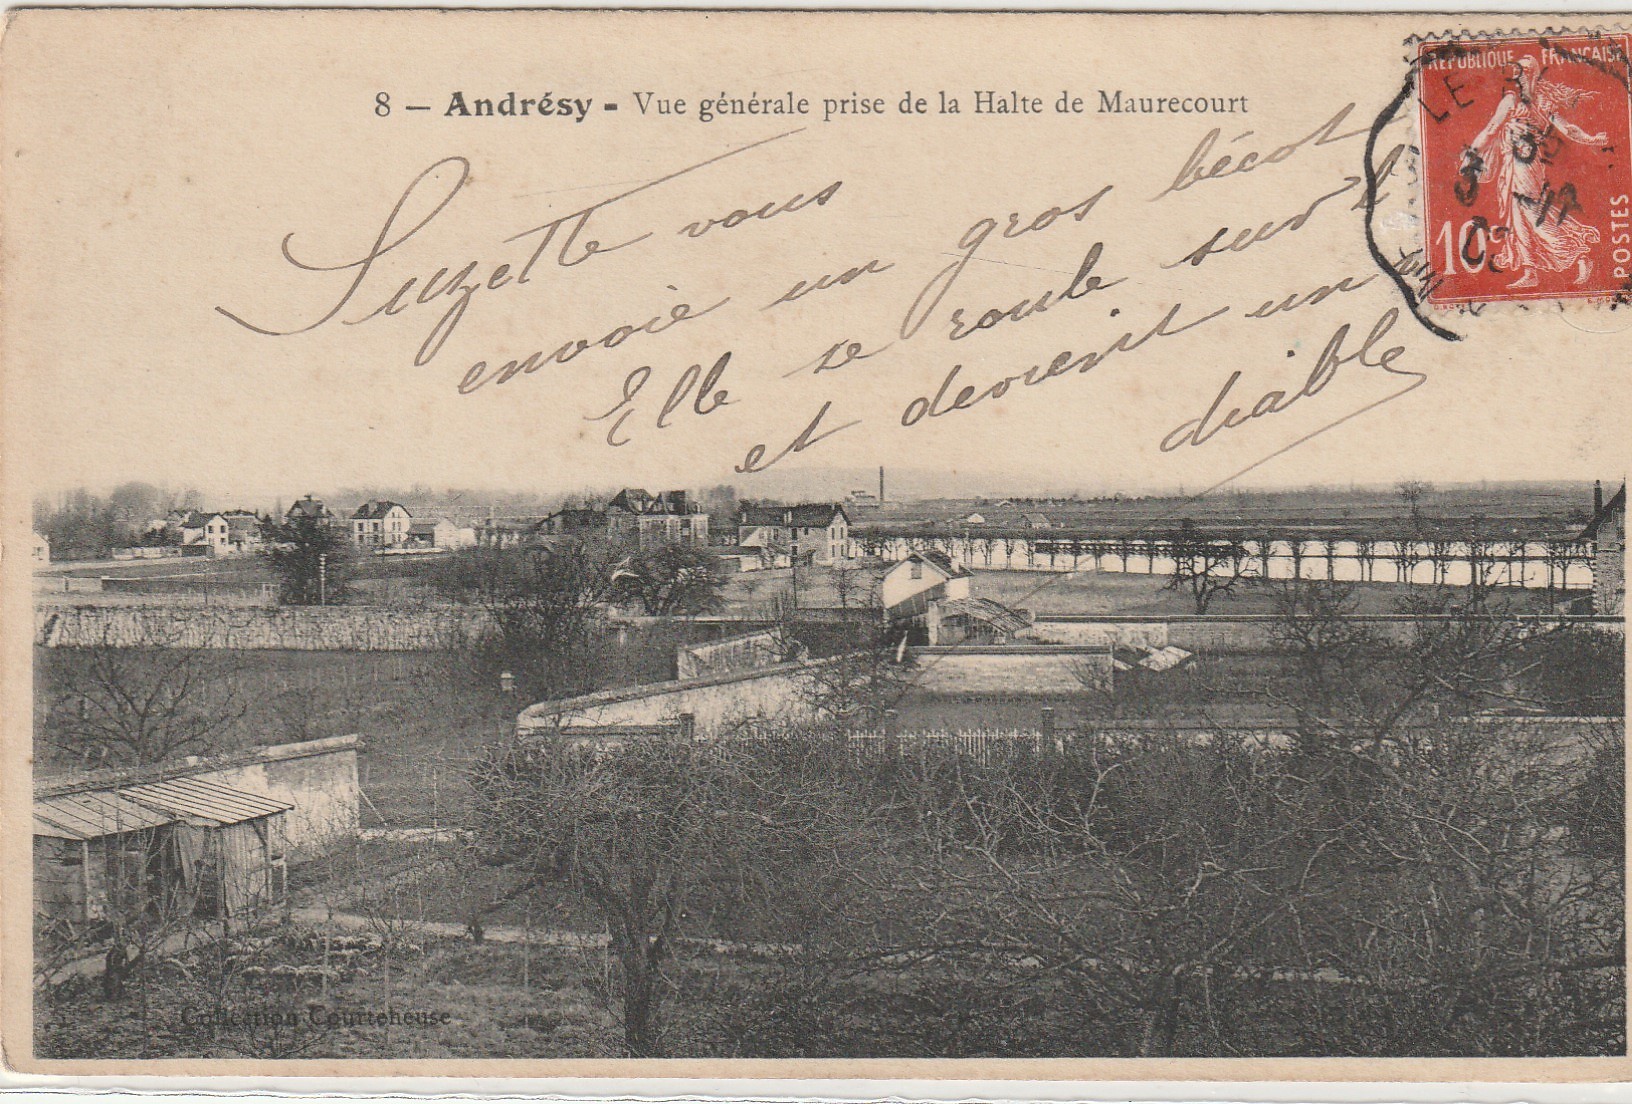 8 — Andrésy - Vue générale prise de la Halte de Maurecourt
Suzette vous
envoie un gros bécot
Elle se roule surtt
et devient un
diable
REPUBLIQUE FRANÇAISE
POSTES
10c
LE
3
Collection Courteheuse